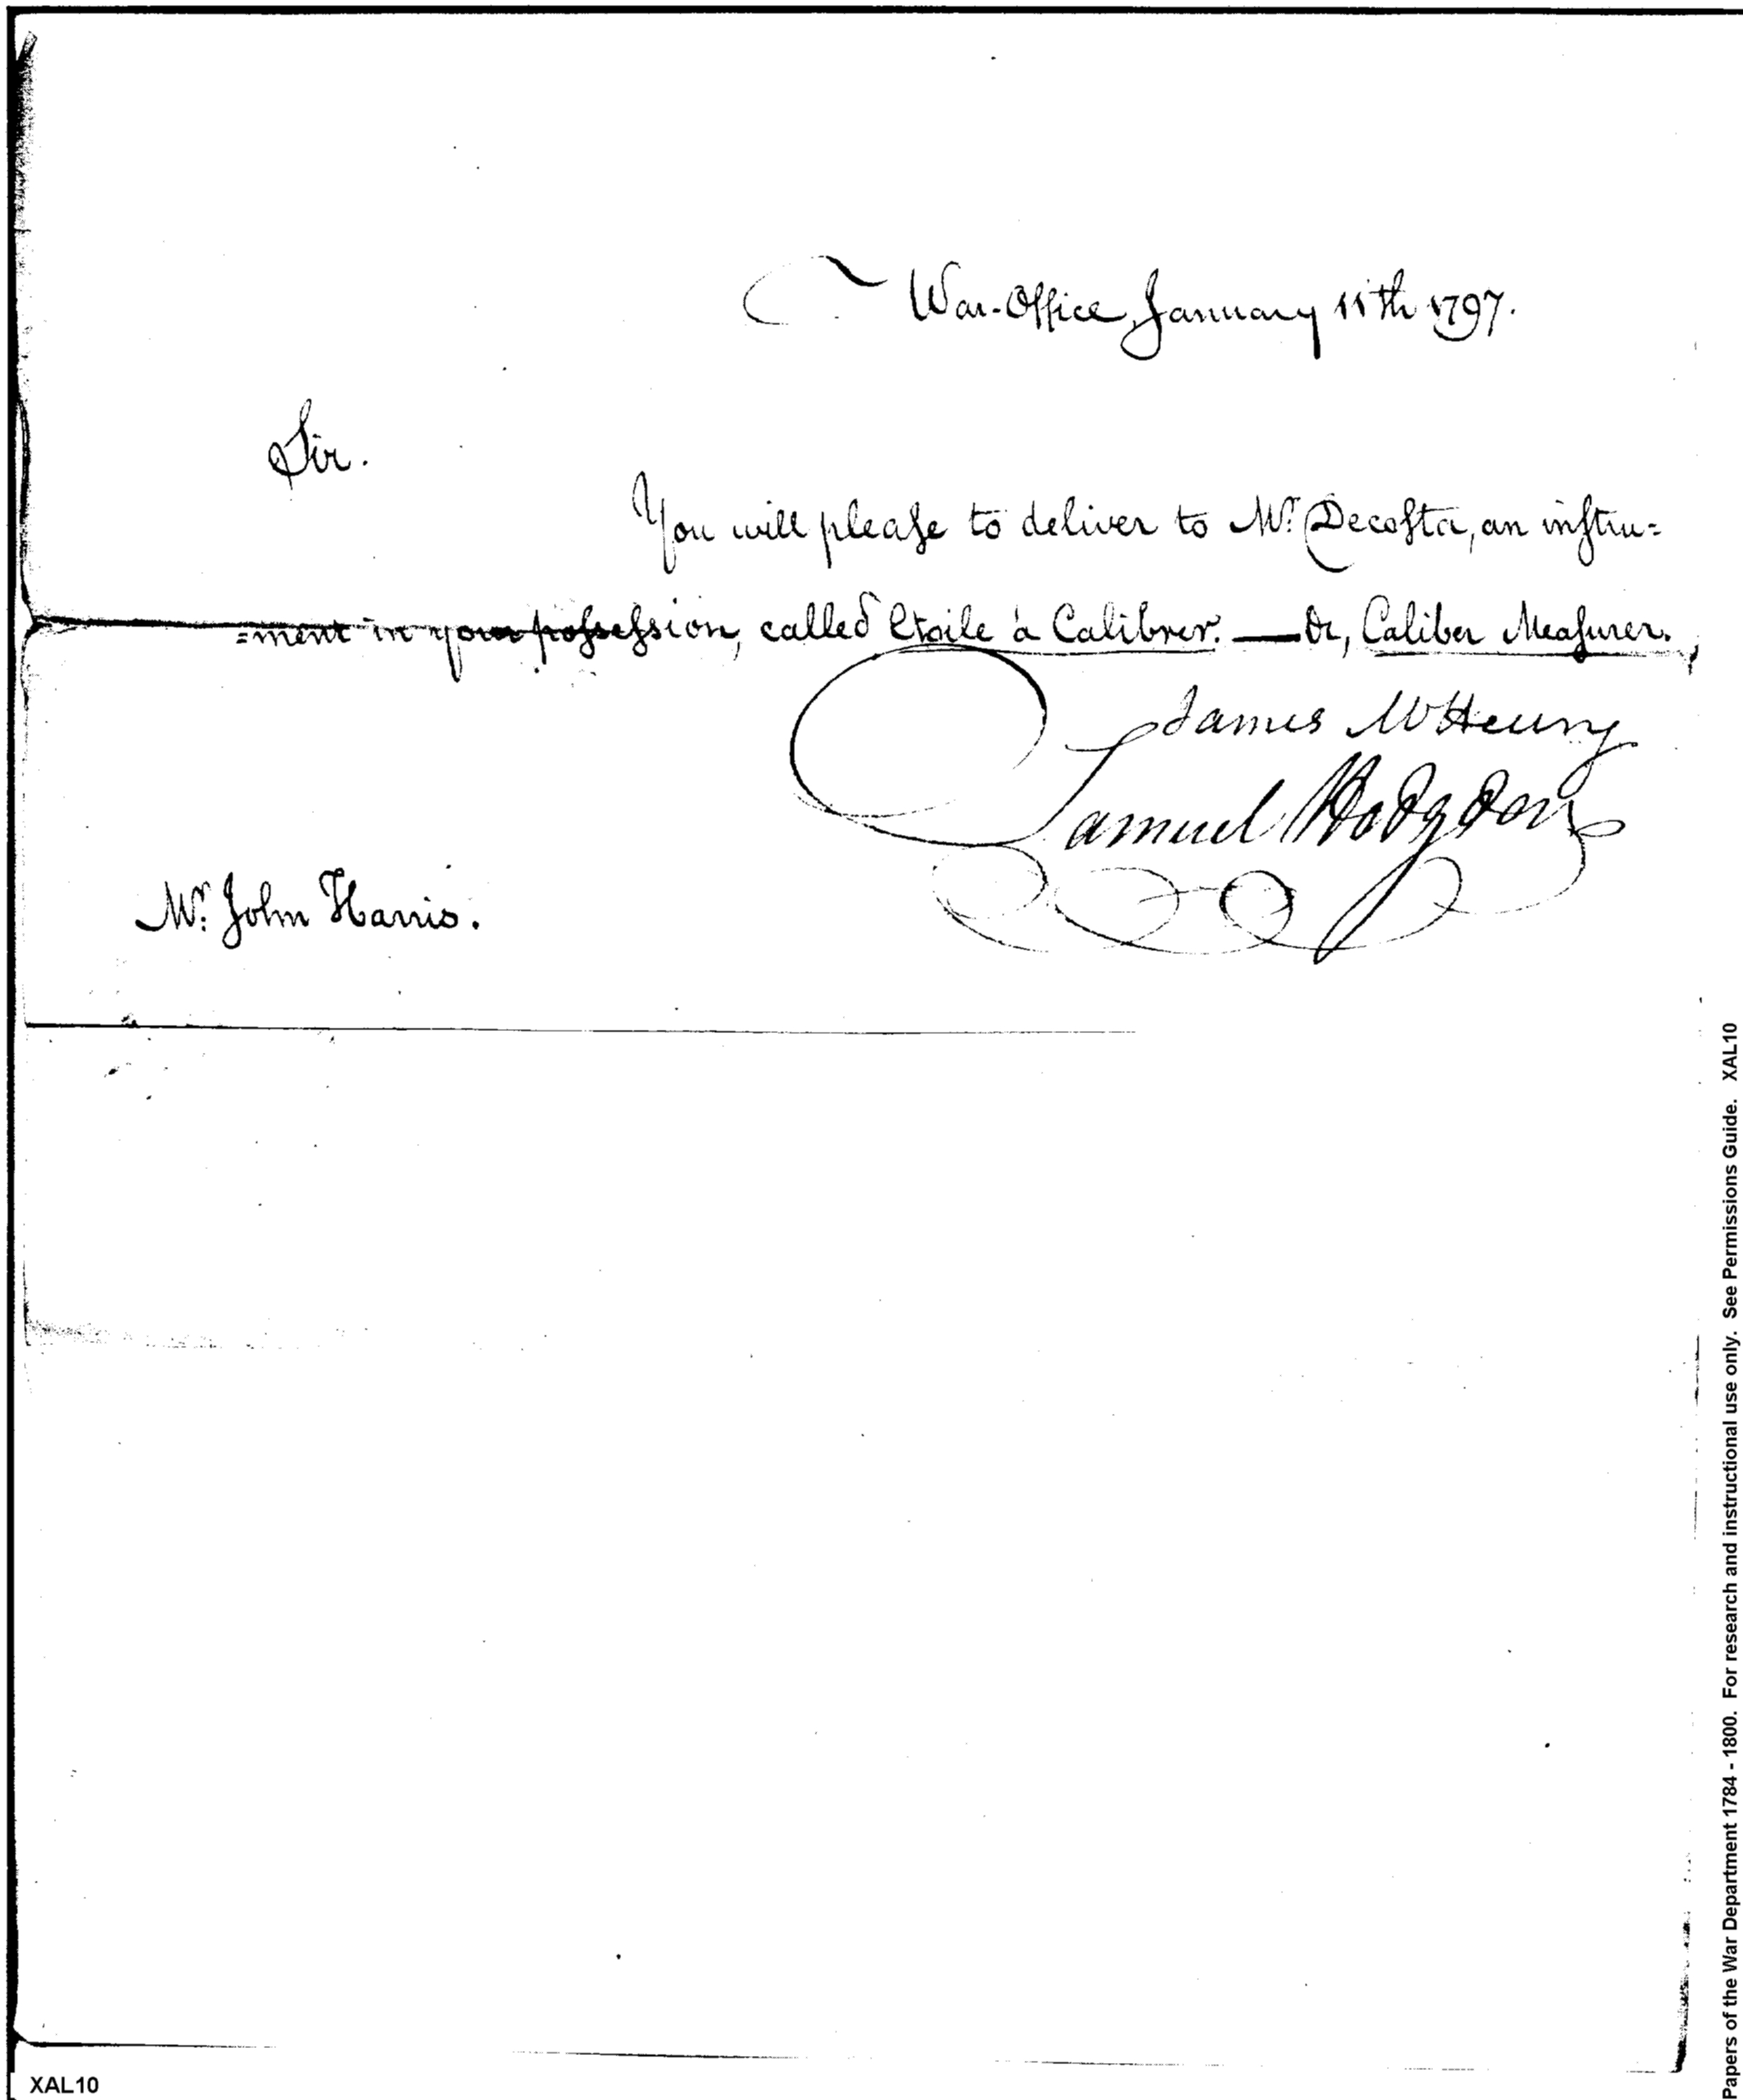 War-Office, January 11th 1797.
Sir.
You will please to deliver to Mr. Decosta, an instru=
=ment in your possession, called Etoile à Calibrer. — Or, Caliber Measurer.
James McHenry
Samuel Hodgdon
Mr. John Harris.
Papers of the War Department 1784 - 1800. For research and instructional use only. See Permissions Guide. XAL10
XAL10